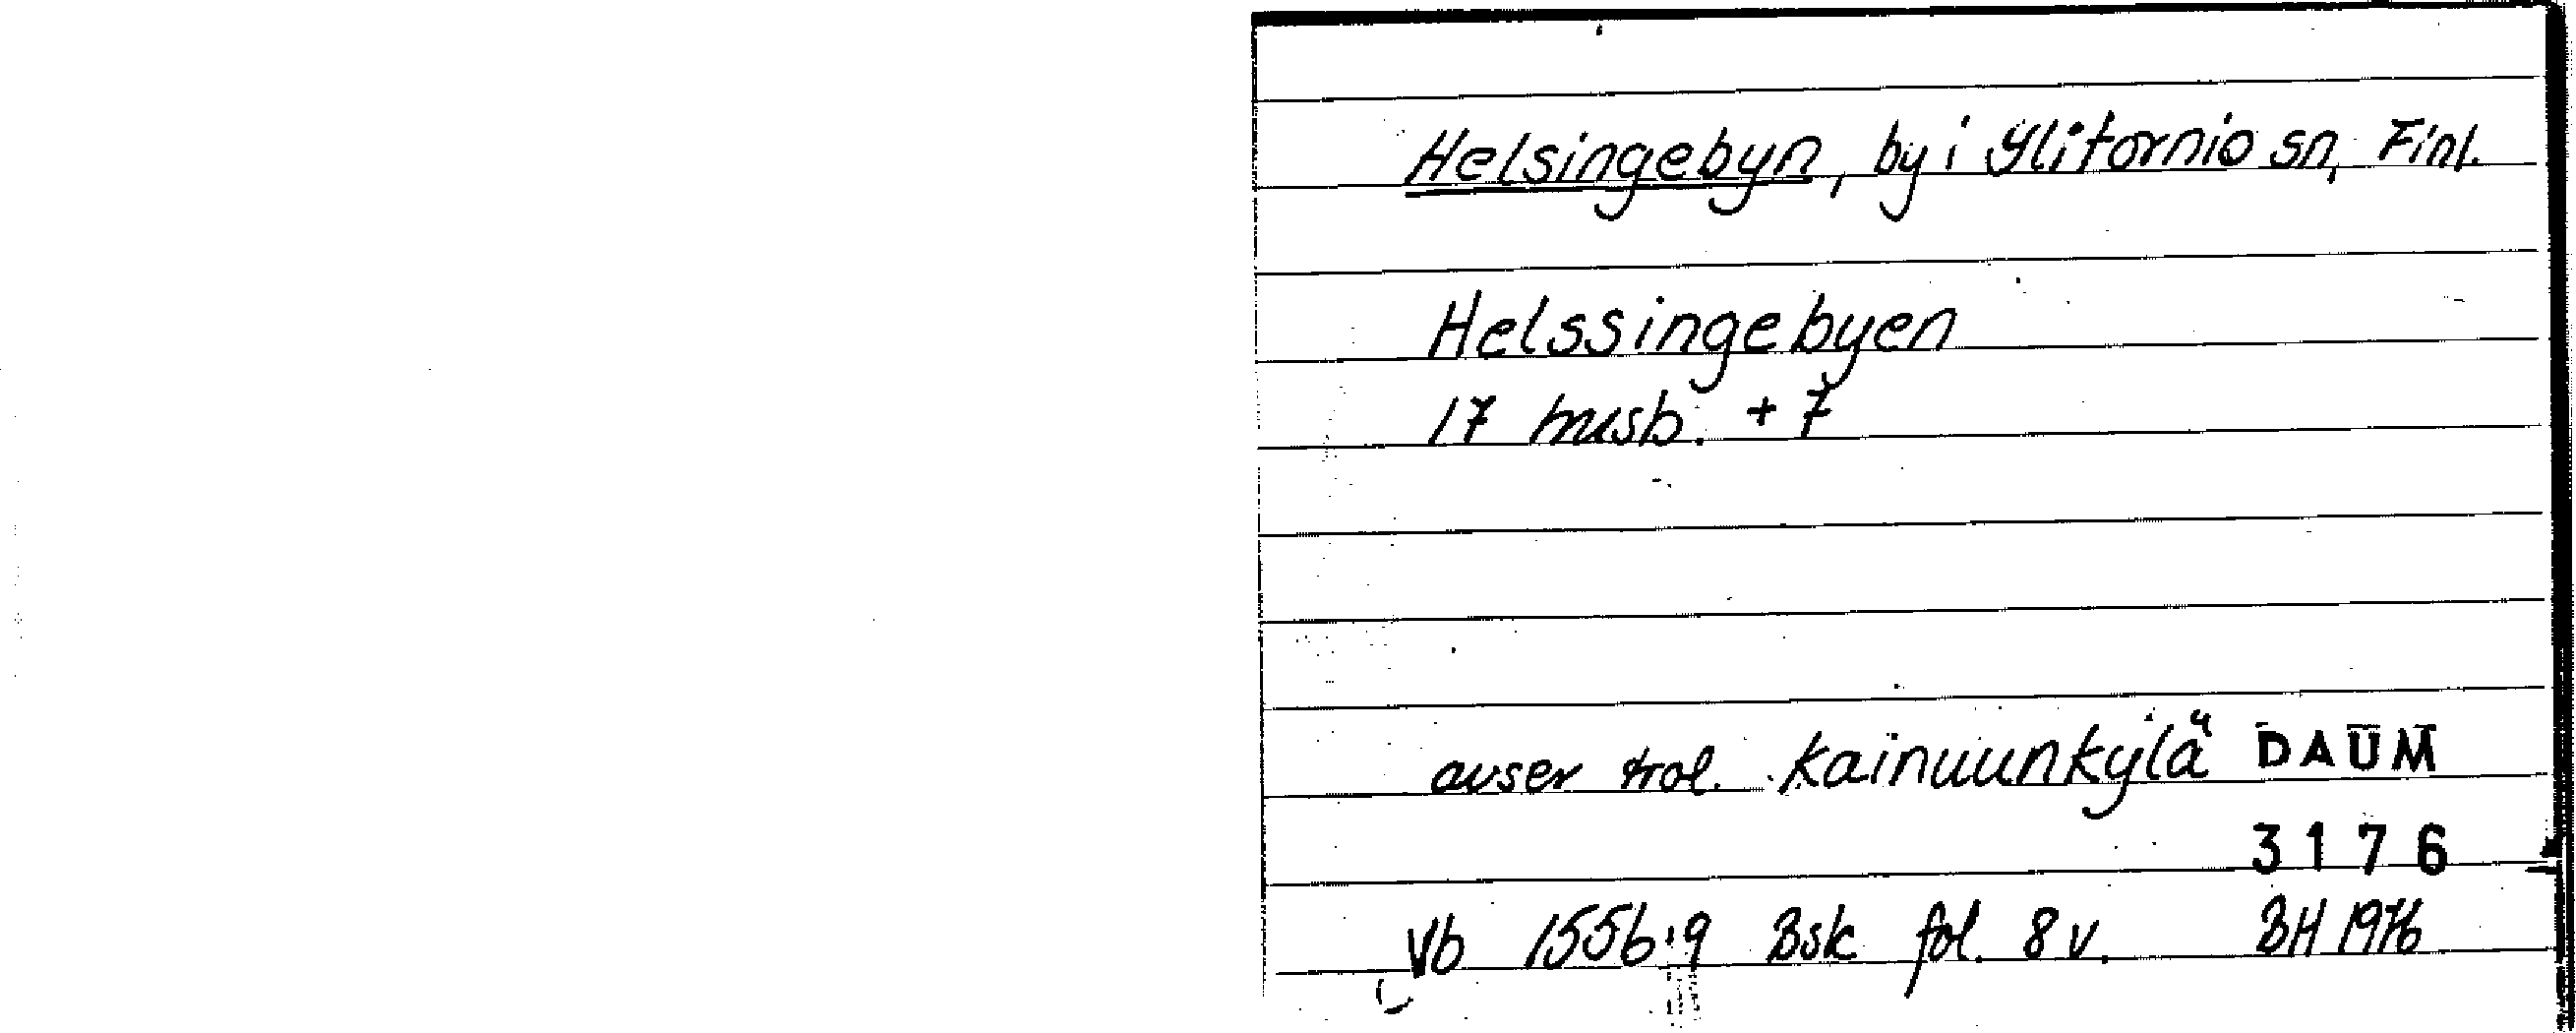 Helsingebyn, by i Ylitornio sn, Finl.
Helssingebyen
17 husb. + 7
avser trol. Kainuunkylä DAUM
3176
Vb 1556:9 Bsk fol. 8 v. BH 1976